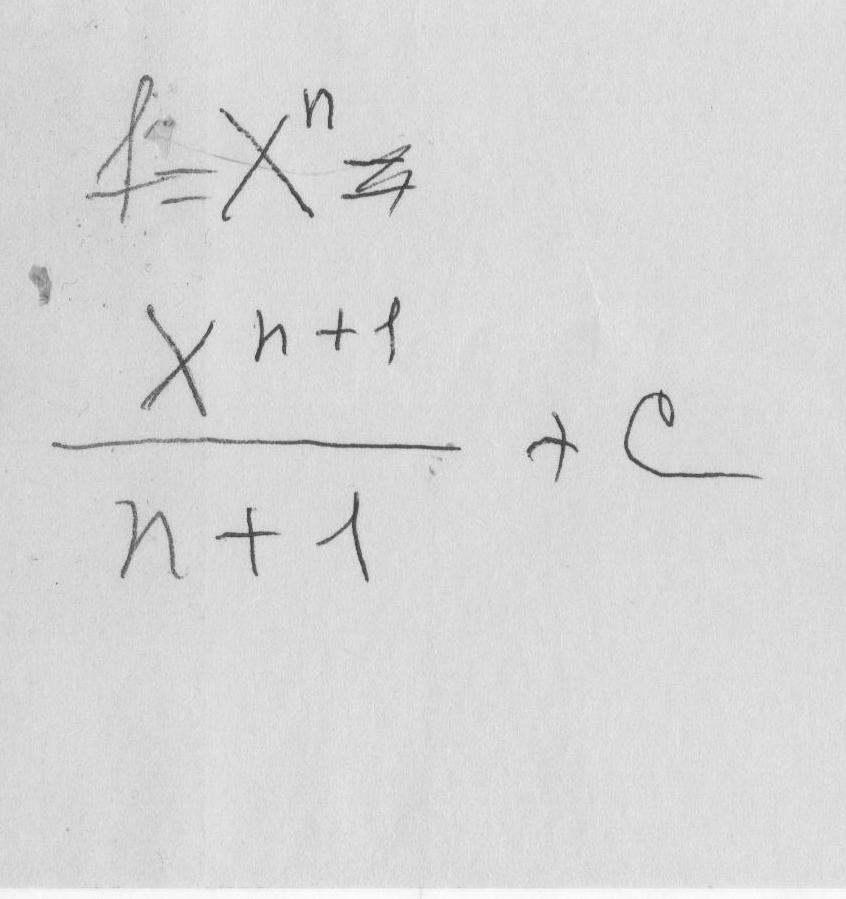 f = xⁿ =
xⁿ⁺¹
n + 1
+ C